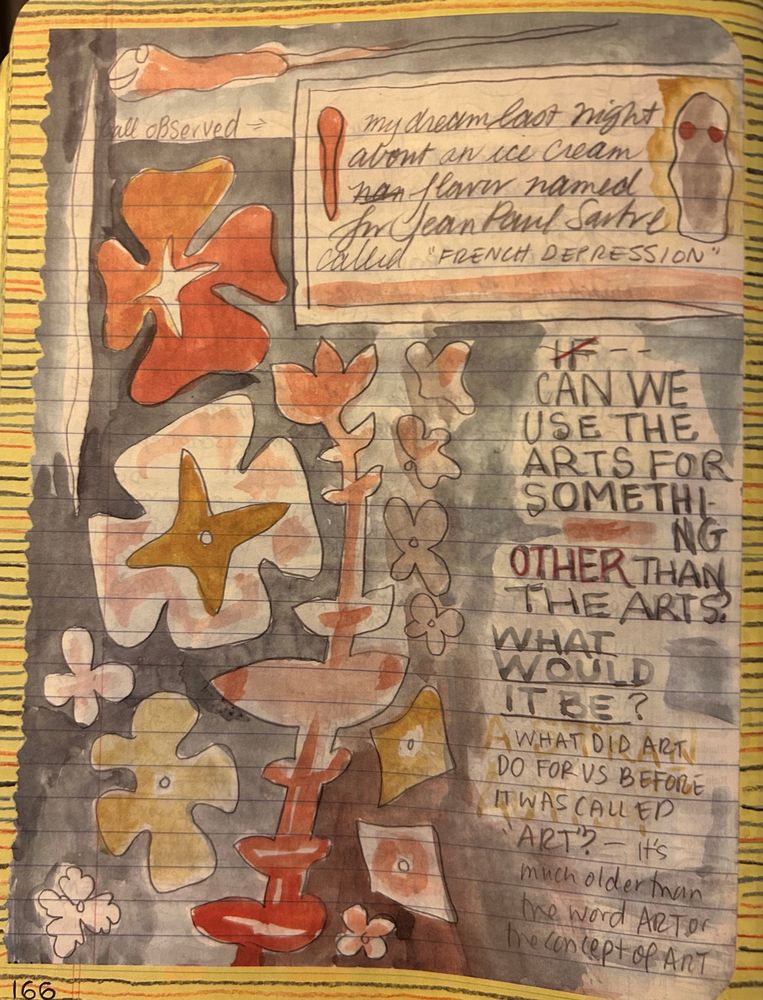 all observed →
my dream last night
about an ice cream
nan flavor named
for Jean Paul Sartre
called "FRENCH DEPRESSION"
IF --
CAN WE
USE THE
ARTS FOR
SOMETHI-
NG
OTHER THAN
THE ARTS?
WHAT
WOULD
IT BE?
WHAT DID ART
DO FOR US BEFORE
IT WAS CALLED
"ART"? — It's
much older than
the word ART or
the concept of ART
166